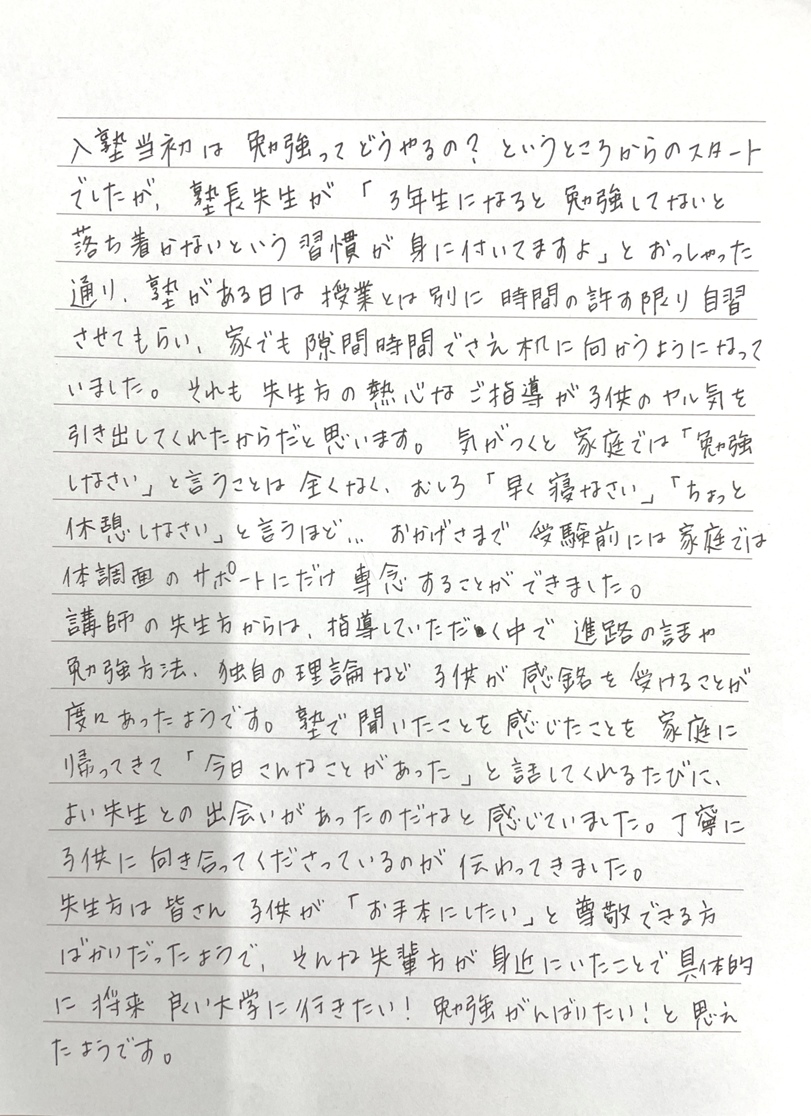 入塾当初は 勉強ってどうやるの？というところからのスタート
でしたが、塾長先生が「3年生になると 勉強してないと
落ち着かないという習慣が身に付いてますよ」とおっしゃった
通り、塾がある日は 授業とは別に 時間の許す限り自習
させてもらい、家でも隙間時間でさえ机に向かうようになって
いました。それも 先生方の熱心なご指導が子供のヤル気を
引き出してくれたからだと思います。気がつくと家庭では「勉強
しなさい」と言うことは全くなく、むしろ「早く寝なさい」「ちょっと
休憩しなさい」と言うほど… おかげさまで 受験前には家庭では
体調面のサポートにだけ専念することができました。
講師の先生方からは、指導していただく中で 進路の話や
勉強方法、独自の理論など 子供が感銘を受けることが
度々あったようです。塾で聞いたことを感じたことを 家庭に
帰ってきて「今日こんなことがあった」と話してくれるたびに、
よい先生との出会いがあったのだなと感じていました。丁寧に
子供に向き合ってくださっているのが伝わってきました。
先生方は皆さん 子供が「お手本にしたい」と尊敬できる方
ばかりだったようで、そんな先輩方が身近にいたことで具体的
に将来 良い大学に行きたい！勉強がんばりたい！と思え
たようです。